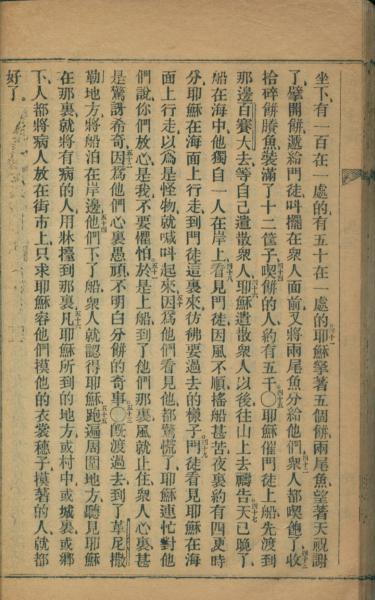 坐下有一百在一處的有五十在一處的耶穌拏著五個餅兩尾魚望著天祝謝
了擘開餅遞給門徒叫擺在衆人面前又將兩尾魚分給他們衆人都喫飽了收
拾碎餅賸魚裝滿了十二筐子喫餅的人約有五千〇耶穌催門徒上船先渡到
那邊白賽大去等自己遣散衆人耶穌遣散衆人以後往山上去禱告天已晚了
船在海中他獨自一人在岸上看見門徒因風不順搖船甚苦夜裏約有四更時
分耶穌在海面上行走到門徒這裏來彷彿要過去的樣子門徒看見耶穌在海
面上行走以爲是怪物就喊叫起來因爲他們看見他都驚慌了耶穌連忙對他
們說你們放心是我不要懼怕於是上船到了他們那裏風就止住衆人心裏甚
是驚訝希奇因爲他們心裏愚頑不明白分餅的奇事〇旣渡過去到了革尼撒
勒地方將船泊在岸邊他們下了船衆人就認得耶穌跑遍周圍地方聽見耶穌
在那裏就將有病的人用牀擡到那裏凡耶穌所到的地方或村中或城裏或鄉
下人都將病人放在街市上只求耶穌容他們摸他的衣裳穗子摸著的人就都
好了